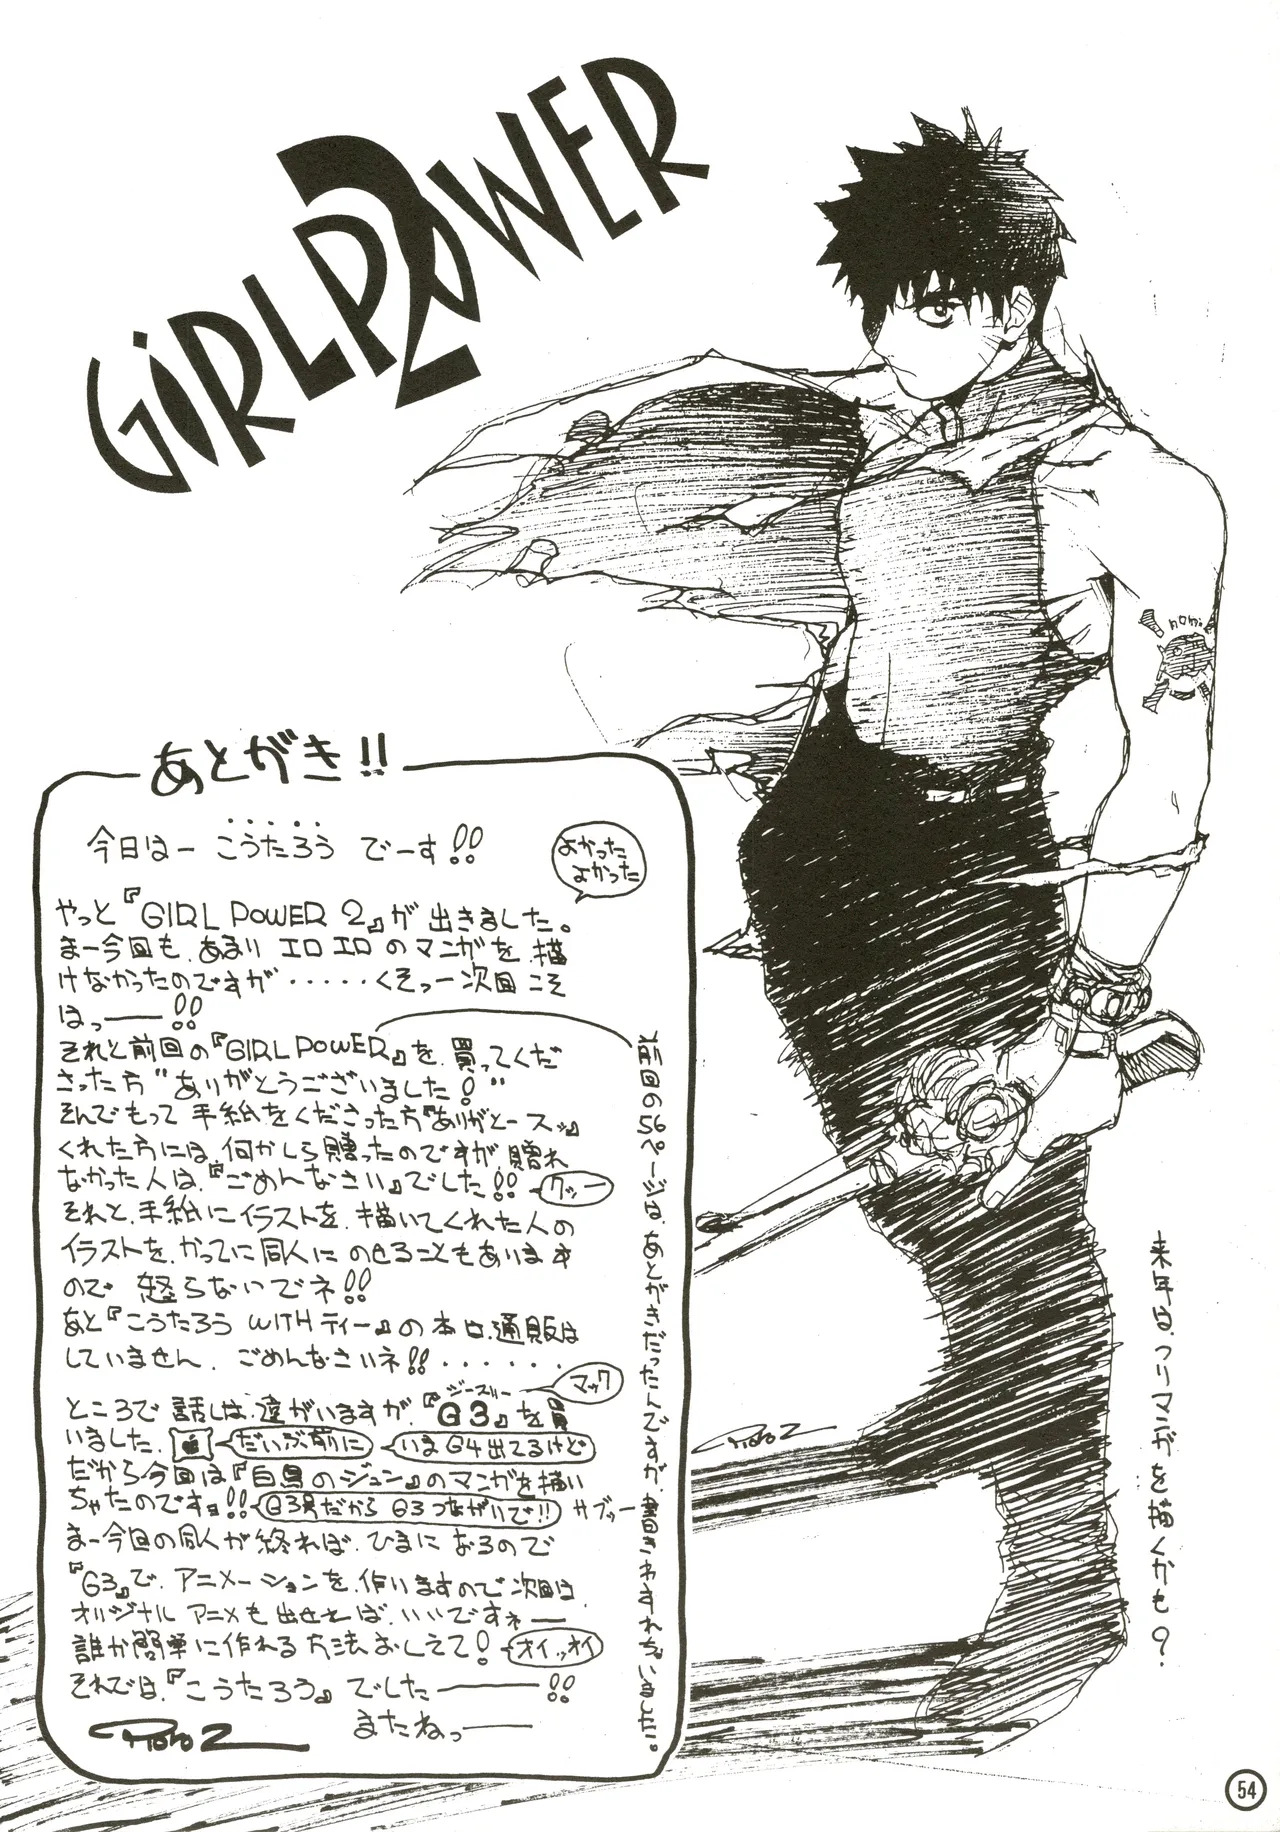 GiRLPOWER
2
nomi
あとがき!!
今日はー こうたろう でーす!!
よかった
よかった
やっと『GIRL POWER 2』が出きました。
まー今回も、あまり エロエロのマンガを、描
けなかったのですが・・・・・くそっー次回こそ
はっー!!
それと前回の『GIRL POWER』を、買ってくだ
さった方"ありがとうございました!"
そんでもって 手紙をくださった方『ありがとースッ』
くれた方には、何かしら贈ったのですが、贈れ
なかった人は、『ごめんなさい』でした!!
クッー
それと、手紙にイラストを、描いてくれた人の
イラストを、かってに同人に のせることもあります
ので 怒らないでネ!!
あと『こうたろう WITH ティー』の本は、通販は
していません、ごめんなさいネ!!・・・・・・
マック
ジースリー
ところで 話しは、遠がいますが、『G3』を買
いました、
だいぶ前に
いまG4出てるけど
だから今回は『白鳥のジュン』のマンガを描い
ちゃたのですョ!!
G3号だから G3つながいで!!
サブッー
まー今回の同人が終れば、ひまに なるので
『G3』で、アニメーションを、作いますので次回は、
オリジナル アニメも出せとば、いいですネー
誰か簡単に作れる方法おしえて!
オイッオイ
それでは、『こうたろう』でしたー!!
またねっー
※前回の56ページは、あとがきだったんですが、書きわすれちゃいました。
来年は、フリマンガを描くかも?
54